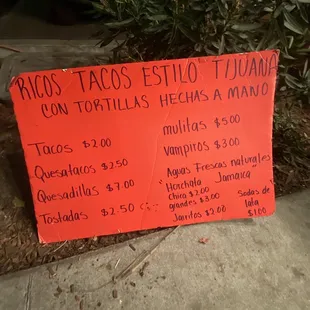 RICOS TACOS ESTILO TIJUANA
CON TORTILLAS HECHAS A MANO
Tacos $2.00
Quesatacos $2.50
Quesadillas $7.00
Tostadas $2.50
mulitas $5.00
Vampiros $3.00
Aguas Frescas naturales
Horchata Jamaica
Chica $2.00
grandes $3.00
Jarritos $2.00
Sodas de
lata
$1.00